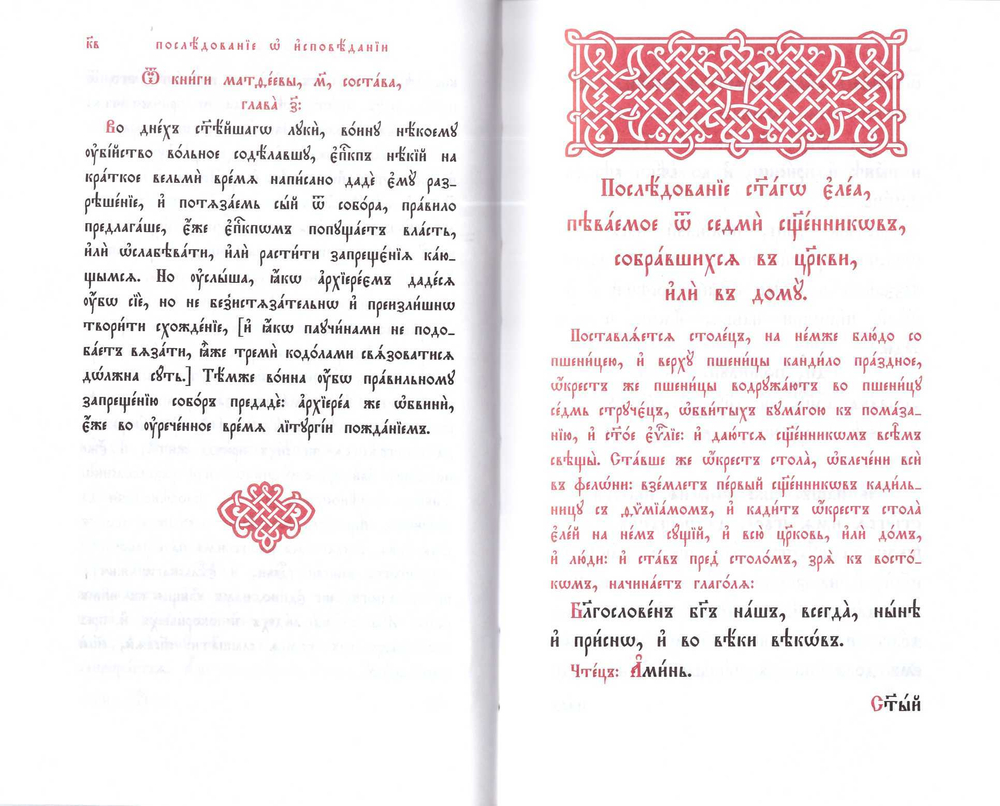 к҃в послѣ́дованїе ѡ҆ и҆сповѣ́данїи
Ѿ кни́ги матѳ́еевы, м҃, соста́ва,
глава̀ з҃:
Во дне́хъ ст҃ѣ́йшагѡ лукѝ, во́ину нѣ́коему
ᲂу҆бі́йство во́льное содѣ́лавшу, є҆пⷭ҇кпъ нѣ́кїй на
кра́ткое вельмѝ вре́мѧ напи́сано дадѐ є҆му̀ раз-
рѣше́нїе, и҆ потѧза́емь сы́й ѿ собо́ра, пра́вило
предлага́ше, є҆́же є҆пⷭ҇кпѡмъ попуща́етъ вла́сть,
и҆лѝ ѡ҆слабѣва́ти, и҆лѝ расти́ти запрещє́нїѧ ка́ю-
щымсѧ. Но ᲂу҆слы́ша, ꙗ҆́кѡ а҆рхїере́ємъ даде́сѧ
ᲂу҆́бѡ сїѐ, но не без̾истѧза́тельнѡ и҆ преизли́шнѡ
твори́ти схожде́нїе, [и҆ ꙗ҆́кѡ паучи́нами не подо-
ба́етъ вѧза́ти, ꙗ҆̀же тремѝ кодо́лами свѧ́зоватисѧ
дѡ́лжна су́ть.] Тѣ́мже во́ина ᲂу҆́бѡ пра́вильному
запреще́нїю собо́ръ предадѐ: а҆рхїере́а же ѡ҆бвинѝ,
є҆́же во ᲂу҆рече́нное вре́мѧ лїтургі́и пожда́нїемъ.
Послѣ́дованїе ст҃а́гѡ є҆ле́а,
пѣва́емое ѿ седмѝ сщ҃е́нникѡвъ,
собра́вшихсѧ въ цр҃кви,
и҆лѝ въ домꙋ̀.
Поставлѧ́етсѧ столе́цъ, на не́мже блю́до со
пшени́цею, и҆ верхꙋ̀ пшени́цы канди́ло пра́здное,
ѡ҆́крестъ же пшени́цы водружа́ютъ во пшени́цу
се́дмь стрꙋче́цъ, ѡ҆бви́тыхъ бума́гою къ пома́за-
нїю, и҆ ст҃о́е є҆ѵⷢ҇лїе: и҆ даю́тсѧ сщ҃е́нникѡмъ всѣ̑мъ
свѣщы̀. Ста́вше же ѡ҆́крестъ стола̀, ѡ҆блече́ни всѝ
въ фелѡ́ни: взе́млетъ пе́рвый сщ҃е́нникѡвъ кади́ль-
ницу съ ѳѷмїа́момъ, и҆ кади́тъ ѡ҆́крестъ стола̀
є҆ле́й на не́мъ су́щїй, и҆ всю̀ цр҃ковь, и҆лѝ до́мъ,
и҆ лю́ди: и҆ ста́въ пред̾ столо́мъ, зрѧ̀ къ восто́-
кѡмъ, начина́етъ глаго́лѧ:
Бл҃гослове́нъ бг҃ъ на́шъ, всегда̀, ны́нѣ
и҆ при́снѡ, и҆ во вѣ́ки вѣкѡ́въ.
Чте́цъ: А҆ми́нь.
Ст҃ы́й